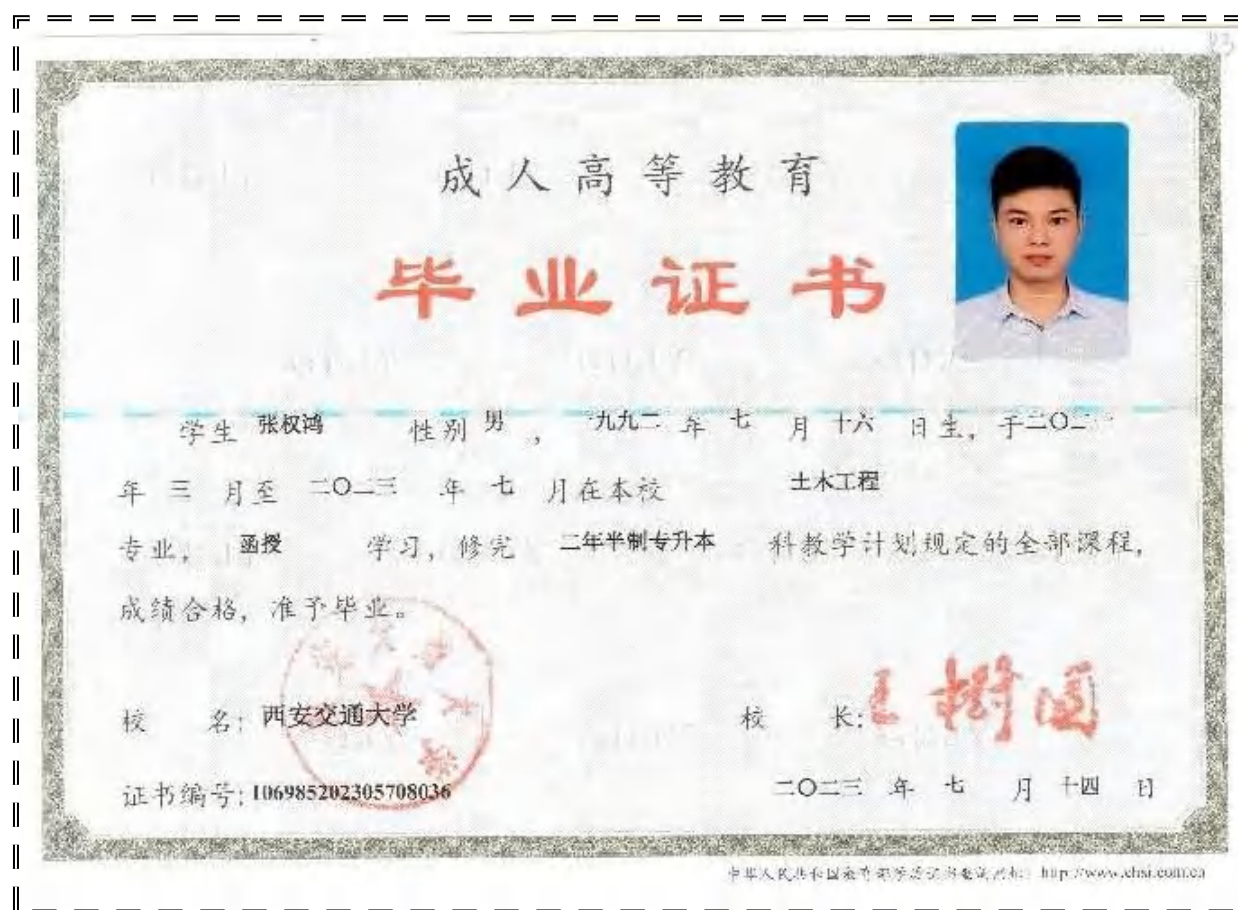 成人高等教育
毕业证书
学生 张权鸿 性别 男 , 一九九二 年 七 月 十六 日生, 于二〇二一
年 三 月至 二〇二三 年 七 月在本校 土木工程
专业, 函授 学习, 修完 二年半制专升本 科教学计划规定的全部课程,
成绩合格, 准予毕业。
校 名: 西安交通大学 校 长: 王树国
证书编号: 106985202305708036 二〇二三 年 七 月 十四 日
中华人民共和国教育部学历证书查询网址: http://www.chsi.com.cn